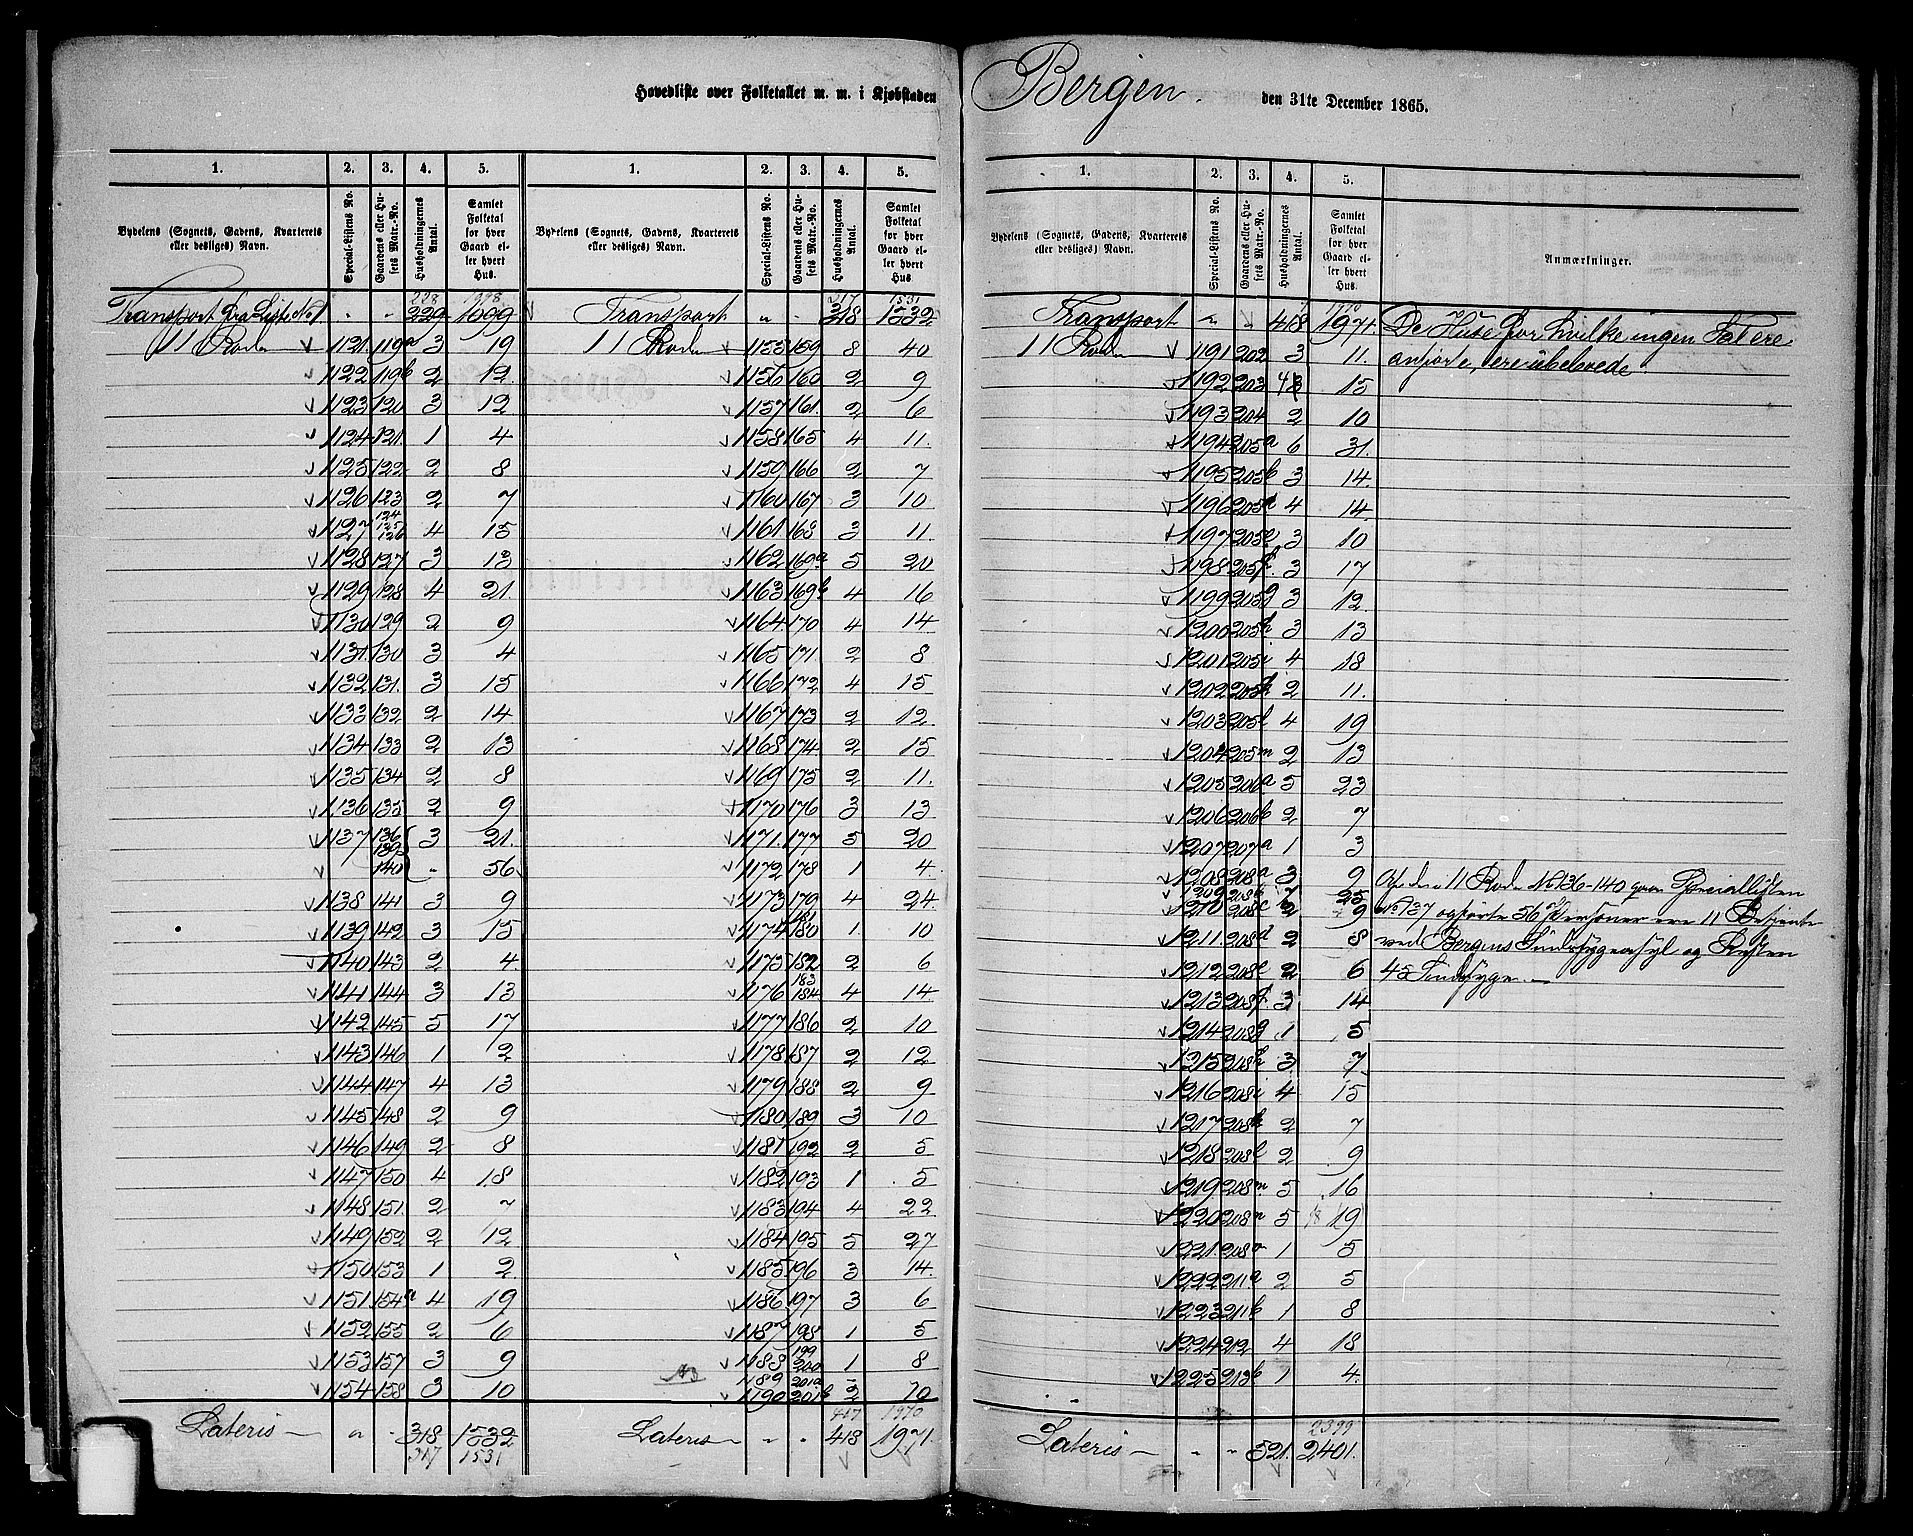 Hovedliste over Folketallet m. m. i Kjøbstaden Bergen. den 31te December 1865.
1. 2. 3. 4. 5.
Bydelens (Sognets, Gadens, Kvarterets eller desliges) Navn. Special-Listens No. Gaardens eller Husets Matr.-No. Husholdningernes Antal. Samlet Folketal for hver Gaard eller hvert Hus.
228 1098
Transport fra Liste No 1 " " 229 1099
11 Rode 1121 119a 3 19
1122 119b 2 12
1123 120 3 12
1124 121 1 4
1125 122 2 8
1126 123 2 7
1127 124 125 126 4 15
1128 127 3 13
1129 128 4 21
1130 129 2 9
1131 130 3 4
1132 131 3 15
1133 132 2 14
1134 133 2 13
1135 134 2 8
1136 135 2 9
1137 136 139 3 21
140 " 56
1138 141 3 9
1139 142 3 15
1140 143 2 4
1141 144 3 13
1142 145 5 17
1143 146 1 2
1144 147 4 13
1145 148 2 9
1146 149 2 8
1147 150 4 18
1148 151 2 7
1149 152 2 12
1150 153 1 2
1151 154a 4 19
1152 155 2 6
1153 157 3 9
1154 158 3 10
Lateris " " 318 1532
317 1531
1. 2. 3. 4. 5.
Bydelens (Sognets, Gadens, Kvarterets eller desliges) Navn. Special-Listens No. Gaardens eller Husets Matr.-No. Husholdningernes Antal. Samlet Folketal for hver Gaard eller hvert Hus
317 1531
Transport " " 318 1532
11 Rode 1155 159 8 40
1156 160 2 9
1157 161 2 6
1158 165 4 11
1159 166 2 7
1160 167 3 10
1161 168 3 11
1162 169a 5 20
1163 169b 4 16
1164 170 4 14
1165 171 2 8
1166 172 4 15
1167 173 2 12
1168 174 2 15
1169 175 2 11
1170 176 3 13
1171 177 5 20
1172 178 1 4
1173 179 4 24
1174 181 180 1 10
1175 182 2 6
1176 183 184 4 14
1177 186 2 10
1178 187 2 12
1179 188 2 9
1180 189 3 10
1181 192 2 5
1182 193 1 5
1183 194 4 22
1184 195 5 27
1185 196 3 14
1186 197 3 6
1187 198 1 5
1188 199 200 1 8
1189 201a
1190 201b 2 10
417 1970
Lateris " " 418 1971
1. 2. 3. 4. 5.
Bydelens (Sognets, Gadens, Kvarterets eller desliges) Navn. Special-Listens No. Gaardens eller Husets Matr.-No. Husholdningernes Antal. Samlet Folketal for hver Gaard eller hvert Hus. Anmærkninger.
1970
Transport " " 418 1971. De Huse for hvilke ingen Tal ere
11 Rode 1191 202 3 11 anførte, ere ubeboede.
1192 203 4 15
1193 204 2 10
1194 205a 6 31
1195 205b 3 14
1196 205d 4 14
1197 205e 3 10
1198 205f 3 17
1199 205g 3 12
1200 205h 3 13
1201 205i 4 18
1202 205k 2 11
1203 205l 4 19
1204 205m 2 13
1205 206a 5 23
1206 206b 2 7
1207 207a 1 3
1208 208a 3 9 Af de i 11 Rode No 136-140 paa Speciallisten
1209 208b 7 25
1210 208c 2 9 No 137 opførte 56 Personer ere 11 Betjente
1211 208d 2 8 ved Bergens Sindssygeasyl og Resten
1212 208e 2 6 45 Sindssyge.
1213 208f 3 14
1214 208g 1 5
1215 208h 3 7
1216 208i 4 15
1217 208k 2 7
1218 208l 2 9
1219 208m 5 16
1220 208n 5 18 19
1221 208o 1 5
1222 211a 2 5
1223 211b 1 8
1224 212 4 18
1225 213b 1 4
2399
Lateris " " 521 2401.